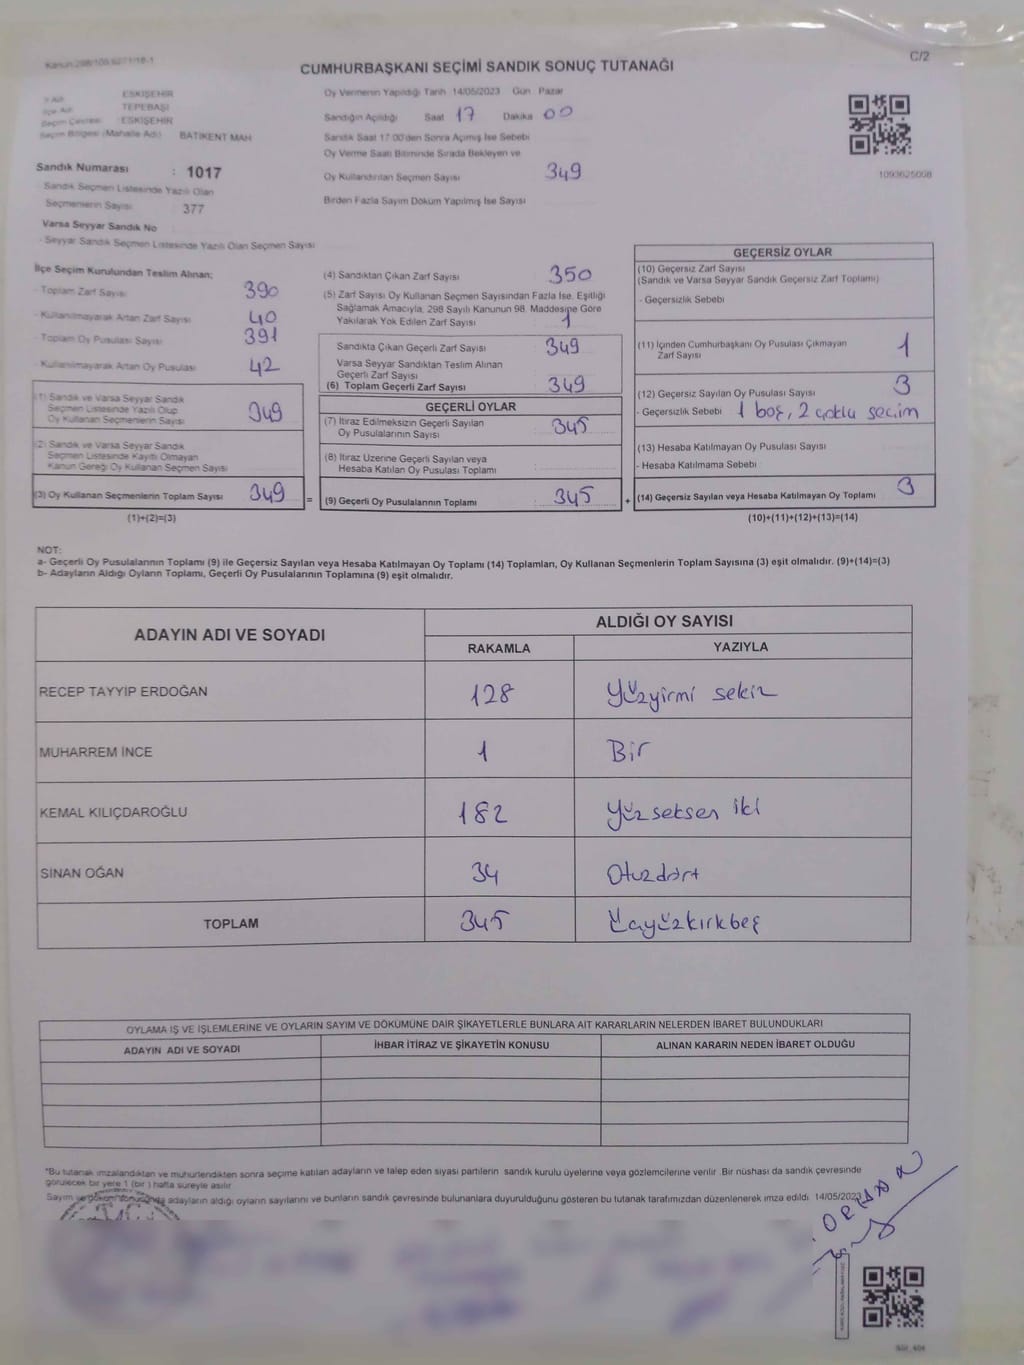 C/2
CUMHURBAŞKANI SEÇİMİ SANDIK SONUÇ TUTANAĞI
İl Adı : ESKİŞEHİR
İlçe Adı : TEPEBAŞI
Seçim Çevresi : ESKİŞEHİR
Seçim Bölgesi (Mahalle Adı) : BATIKENT MAH
Oy Vermenin Yapıldığı Tarih 14/05/2023 Gün Pazar
Sandığın Açıldığı Saat 17 Dakika 00
Sandık Saat 17.00'den Sonra Açılmış İse Sebebi
Oy Verme Saati Bitiminde Sırada Bekleyen ve
Oy Kullandırılan Seçmen Sayısı 349
Birden Fazla Sayım Döküm Yapılmış İse Sayısı
1093625008
Sandık Numarası : 1017
Sandık Seçmen Listesinde Yazılı Olan
Seçmenlerin Sayısı : 377
Varsa Seyyar Sandık No
- Seyyar Sandık Seçmen Listesinde Yazılı Olan Seçmen Sayısı
İlçe Seçim Kurulundan Teslim Alınan;
- Toplam Zarf Sayısı 390
- Kullanılmayarak Artan Zarf Sayısı 40
- Toplam Oy Pusulası Sayısı 391
- Kullanılmayarak Artan Oy Pusulası 42
(1) Sandık ve Varsa Seyyar Sandık
Seçmen Listesinde Yazılı Olup
Oy Kullanan Seçmenlerin Sayısı 349
(2) Sandık ve Varsa Seyyar Sandık
Seçmen Listesinde Kayıtlı Olmayan
Kanun Gereği Oy Kullanan Seçmen Sayısı
(3) Oy Kullanan Seçmenlerin Toplam Sayısı 349 =
(1)+(2)=(3)
(4) Sandıktan Çıkan Zarf Sayısı 350
(5) Zarf Sayısı Oy Kullanan Seçmen Sayısından Fazla İse, Eşitliği
Sağlamak Amacıyla, 298 Sayılı Kanunun 98. Maddesine Göre
Yakılarak Yok Edilen Zarf Sayısı 1
Sandıkta Çıkan Geçerli Zarf Sayısı 349
Varsa Seyyar Sandıktan Teslim Alınan
Geçerli Zarf Sayısı
(6) Toplam Geçerli Zarf Sayısı 349
GEÇERLİ OYLAR
(7) İtiraz Edilmeksizin Geçerli Sayılan
Oy Pusulalarının Sayısı 345
(8) İtiraz Üzerine Geçerli Sayılan veya
Hesaba Katılan Oy Pusulası Toplamı
(9) Geçerli Oy Pusulalarının Toplamı 345 +
GEÇERSİZ OYLAR
(10) Geçersiz Zarf Sayısı
(Sandık ve Varsa Seyyar Sandık Geçersiz Zarf Toplamı)
- Geçersizlik Sebebi
(11) İçinden Cumhurbaşkanı Oy Pusulası Çıkmayan
Zarf Sayısı 1
(12) Geçersiz Sayılan Oy Pusulası Sayısı 3
- Geçersizlik Sebebi 1 boş, 2 çoklu seçim
(13) Hesaba Katılmayan Oy Pusulası Sayısı
- Hesaba Katılmama Sebebi
(14) Geçersiz Sayılan veya Hesaba Katılmayan Oy Toplamı 3
(10)+(11)+(12)+(13)=(14)
NOT:
a- Geçerli Oy Pusulalarının Toplamı (9) ile Geçersiz Sayılan veya Hesaba Katılmayan Oy Toplamı (14) Toplamları, Oy Kullanan Seçmenlerin Toplam Sayısına (3) eşit olmalıdır. (9)+(14)=(3)
b- Adayların Aldığı Oyların Toplamı, Geçerli Oy Pusulalarının Toplamına (9) eşit olmalıdır.
ADAYIN ADI VE SOYADI
ALDIĞI OY SAYISI
RAKAMLA YAZIYLA
RECEP TAYYİP ERDOĞAN 128 Yüzyirmi sekiz
MUHARREM İNCE 1 Bir
KEMAL KILIÇDAROĞLU 182 Yüzseksen iki
SİNAN OĞAN 34 Otuzdört
TOPLAM 345 Üçyüzkırkbeş
OYLAMA İŞ VE İŞLEMLERİNE VE OYLARIN SAYIM VE DÖKÜMÜNE DAİR ŞİKAYETLERLE BUNLARA AİT KARARLARIN NELERDEN İBARET BULUNDUKLARI
ADAYIN ADI VE SOYADI İHBAR İTİRAZ VE ŞİKAYETİN KONUSU ALINAN KARARIN NEDEN İBARET OLDUĞU
"Bu tutanak imzalandıktan ve mühürlendikten sonra seçime katılan adayların ve talep eden siyasi partilerin sandık kurulu üyelerine veya gözlemcilerine verilir. Bir nüshası da sandık çevresinde
görülecek bir yere 1 (bir) hafta süreyle asılır.
Sayım ve döküm sonucunda adayların aldığı oyların sayılarını ve bunların sandık çevresinde bulunanlara duyurulduğunu gösteren bu tutanak tarafımızdan düzenlenerek imza edildi. 14/05/2023